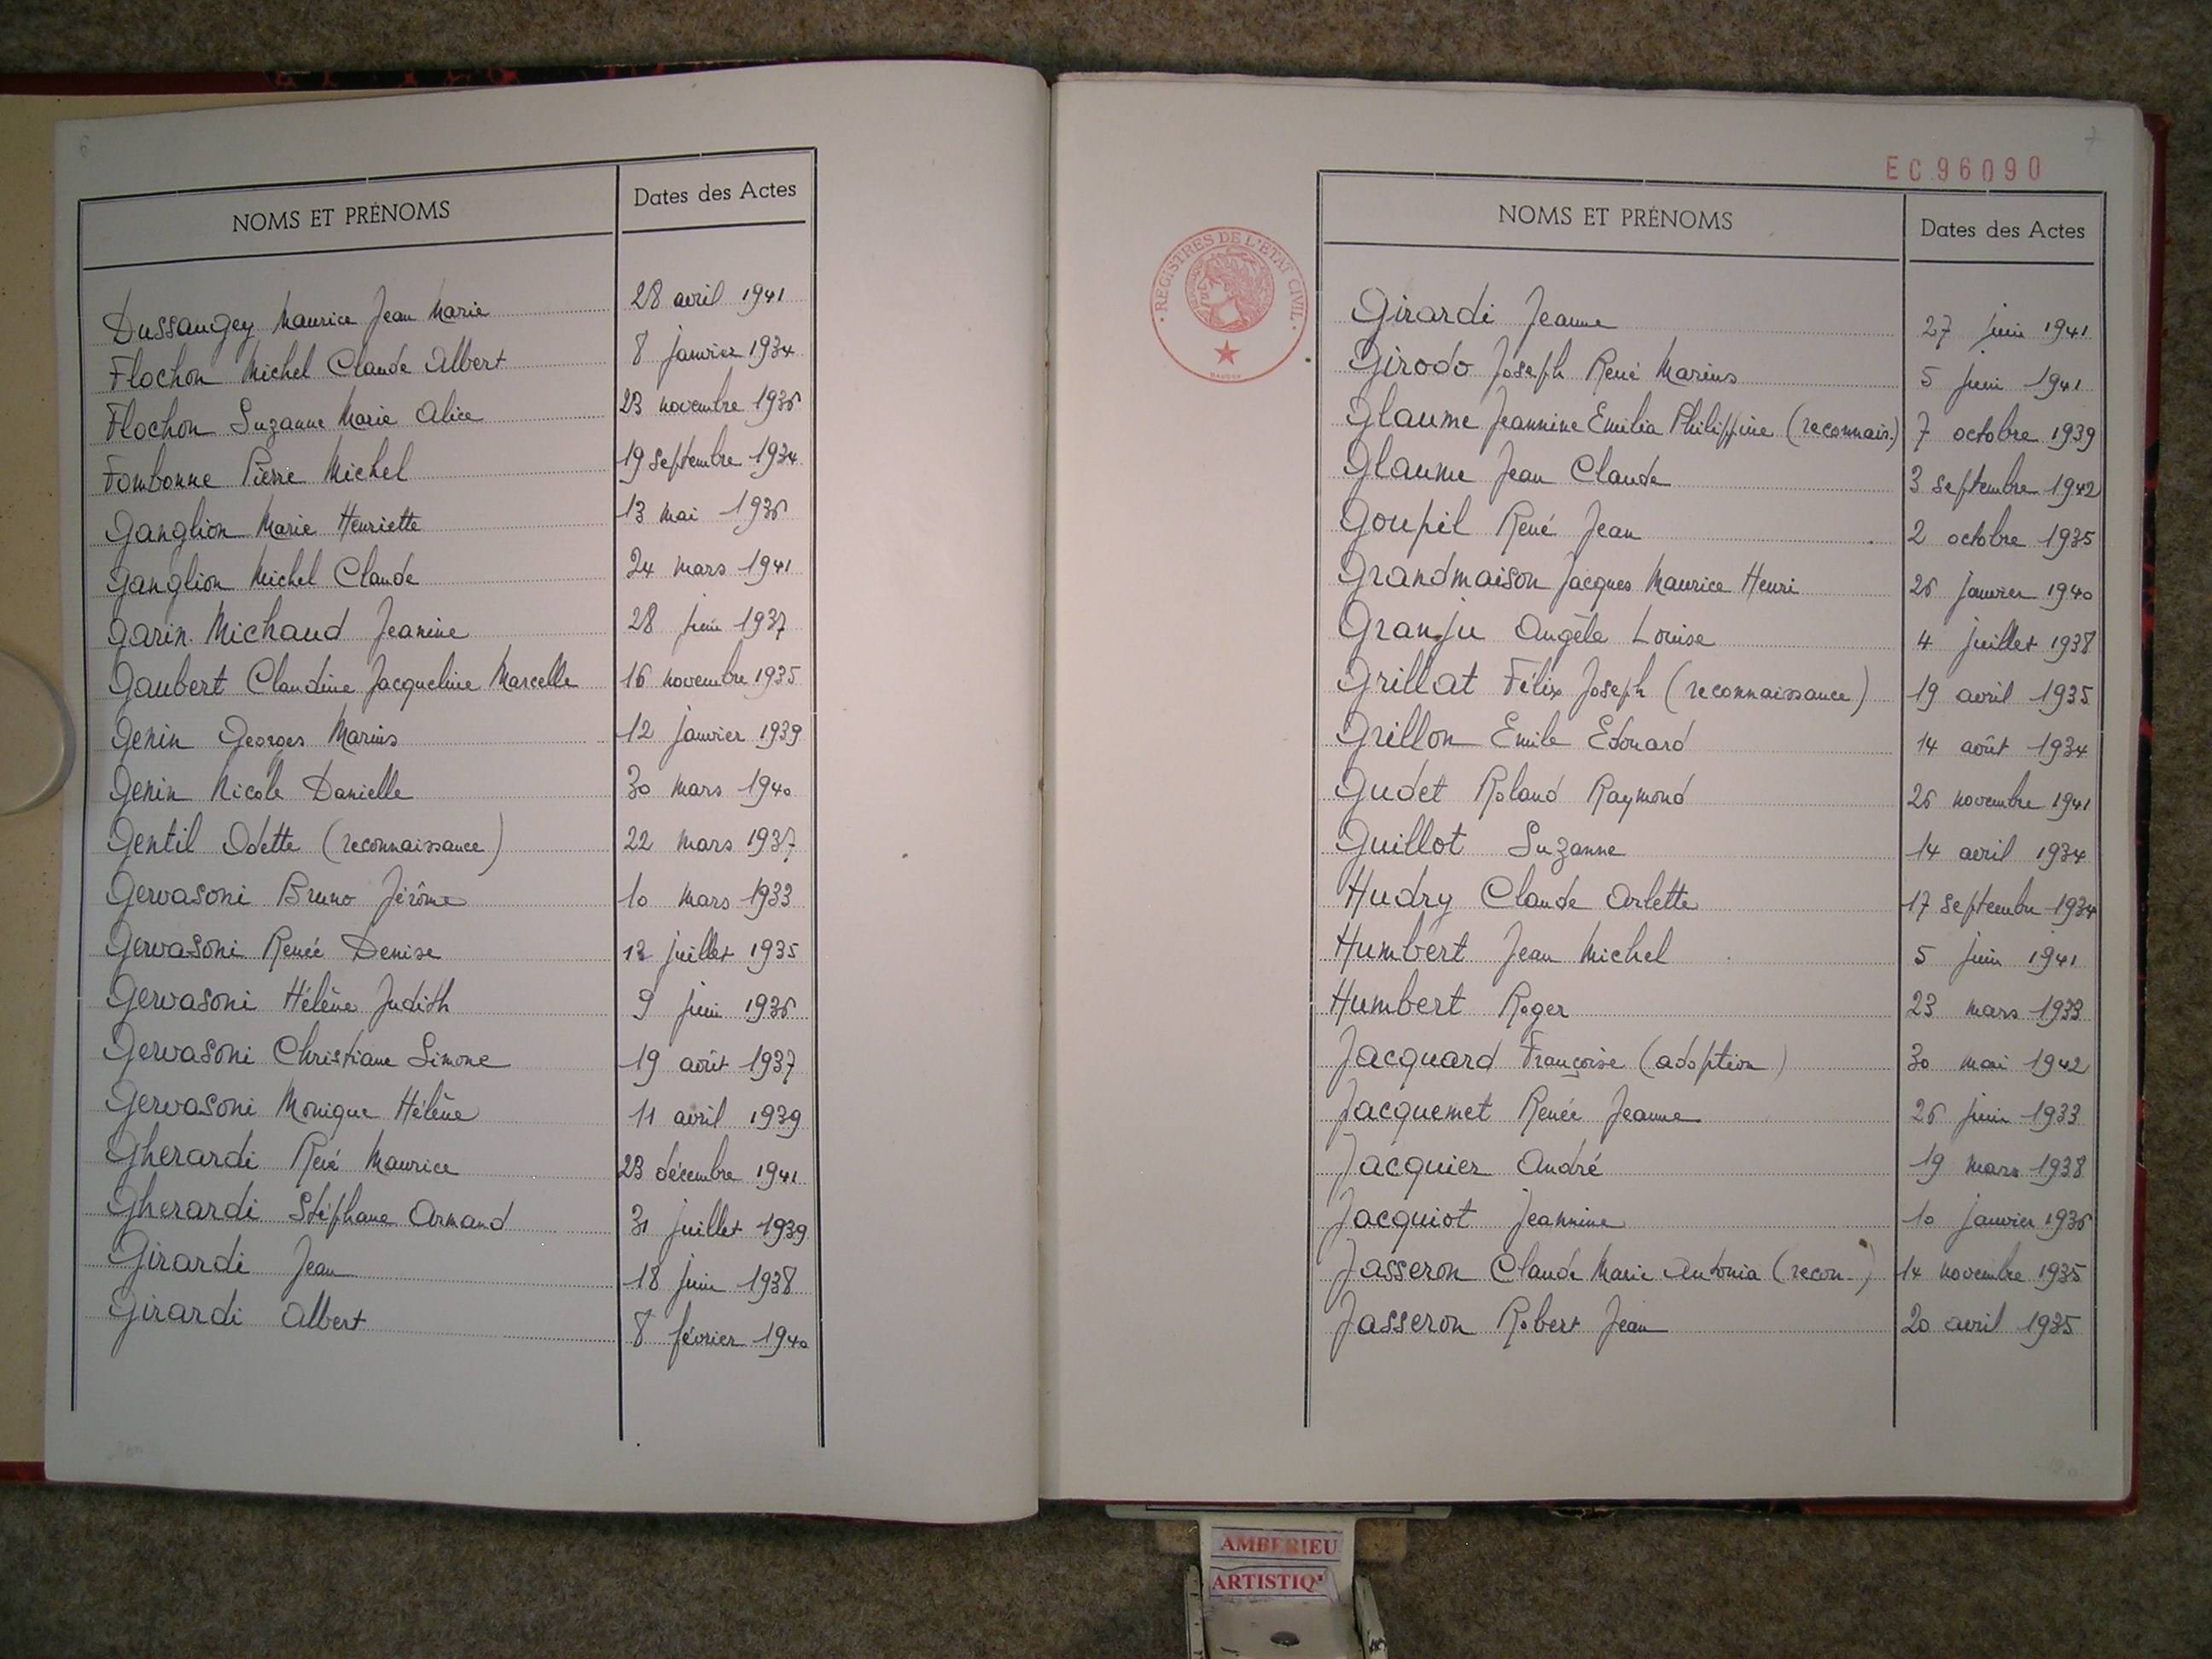 6
NOMS ET PRÉNOMS Dates des Actes
Dussaugey Maurice Jean Marie 28 avril 1941
Flochon Michel Claude Albert 8 janvier 1934
Flochon Suzanne Marie Alice 23 novembre 1936
Fombonne Pierre Michel 19 septembre 1934
Ganglion Marie Henriette 13 mai 1936
Ganglion Michel Claude 24 mars 1941
Garin Michaud Jeanine 28 juin 1937
Gaubert Claudine Jacqueline Marcelle 16 novembre 1935
Genin Georges Marius 12 janvier 1939
Genin Nicole Danielle 30 mars 1940
Gentil Odette (reconnaissance) 22 mars 1937
Gervasoni Bruno Jérôme 10 mars 1933
Gervasoni Renée Denise 12 juillet 1935
Gervasoni Hélène Judith 9 juin 1936
Gervasoni Christiane Simone 19 août 1937
Gervasoni Monique Hélène 11 avril 1939
Gherardi René Maurice 23 décembre 1941
Gherardi Stéphane Armand 31 juillet 1939
Girardi Jean 18 juin 1938
Girardi Albert 8 février 1940
7
EC 96090
REGISTRES DE L'ETAT CIVIL
NOMS ET PRÉNOMS Dates des Actes
Girardi Jeanne 27 juin 1941
Girodo Joseph René Marius 5 juin 1941
Glaume Jeannine Emilia Philippine (reconnais.) 7 octobre 1939
Glaume Jean Claude 3 septembre 1942
Goupil René Jean 2 octobre 1935
Grandmaison Jacques Maurice Henri 26 janvier 1940
Granju Angèle Louise 4 juillet 1938
Grillat Félix Joseph (reconnaissance) 19 avril 1935
Grillon Emile Edouard 14 août 1934
Gudet Roland Raymond 26 novembre 1941
Guillot Suzanne 14 avril 1934
Hudry Claude Arlette 17 septembre 1934
Humbert Jean Michel 5 juin 1941
Humbert Roger 23 mars 1933
Jacquard Françoise (adoption) 30 mai 1942
Jacquemet Renée Jeanne 26 juin 1933
Jacquier André 19 mars 1938
Jacquiot Jeannine 10 janvier 1936
Jasseron Claude Marie Antonia (recon.) 14 novembre 1935
Jasseron Robert Jean 20 avril 1935
AMBERIEU
ARTISTIQ